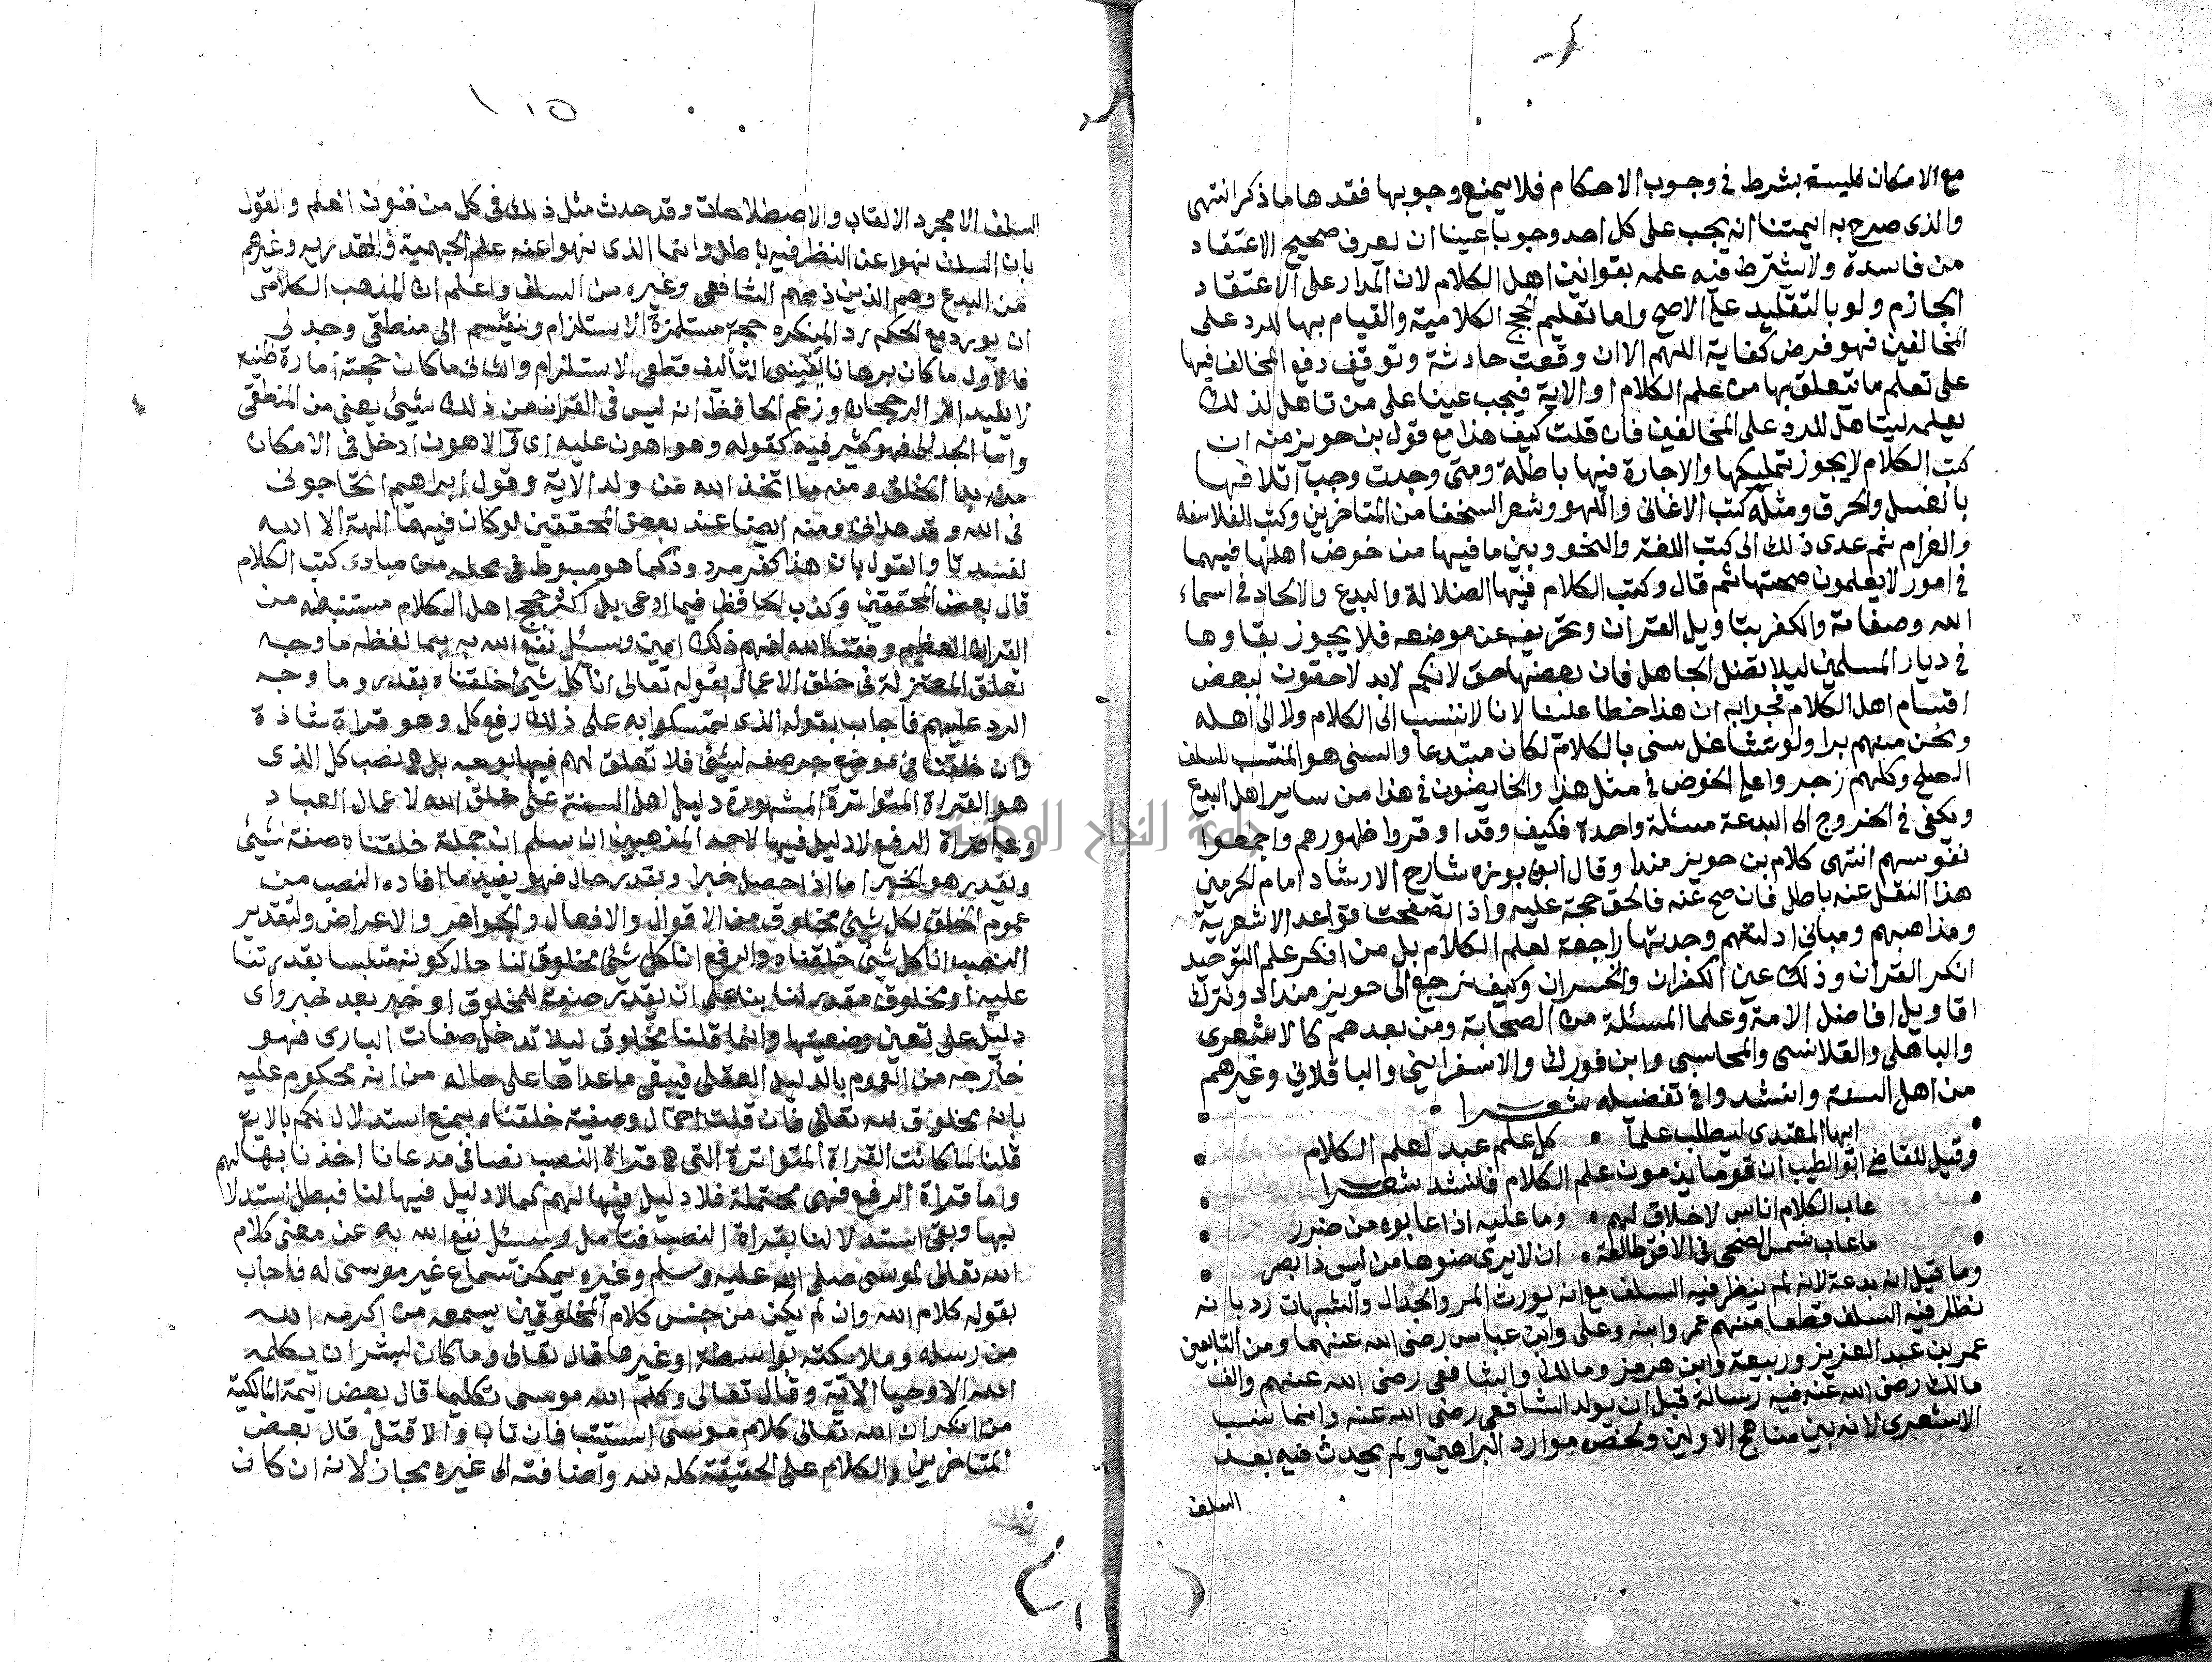 مع الامكان فليسة بشرط في وجوب الاحكام فلا يمنع وجوبها فقدها ما ذكر انتهى
والذى صرح به ايمتنا انه يجب على كل احد وجوبا عينا ان يعرف صحيح الاعتقاد
من فاسدة ولا يشترط فيه علمه بقوانين اهل الكلام لان المدار على الاعتقاد
الجازم ولو بالتقليد على الاصح واما تعليم الحجج الكلامية والقيام بها للرد على
المخالفين فهو فرض كفاية اللهم الا ان وقعت حادثة وتوقف دفع المخالف فيها
على تعلم ما يتعلق بها من علم الكلام او الاية فيجب عينا على من تاهل لذلك
يعلمه ليتاهل للرد على المخالفين فان قلت كيف هذا مع قول بن حويز منه ان
كتب الكلام لا يجوز تمليكها والاجارة فيها باطلة ومتى وجدت وجب اتلافها
بالغسل والحرق ومثله كتب الاغانى واللهو وشعر السخفا من المتاخرين وكتب الفلاسفه
والعزام ثم عدى ذلك الى كتب اللغة والنحو وبين ما فيها من خوض اهلها فيهما
في امور لا يعلمون صحتها ثم قال وكتب الكلام فيها الضلالة والبدع والالحاد في اسماء
الله وصفاته والكفر بتاويل القران وتحريفه عن موضعه فلا يجوز بقاوها
في ديار المسلمين ليلا تضل الجاهل فان بعضها حق لانكم لابد لاحقون لبعض
اقسام اهل الكلام فجوابه ان هذا خطا علينا لانا لا ننسب الى الكلام ولا الى اهله
ونحن منهم برا ولو تشاغل سنى بالكلامة لكان مبتدعا والسنى هو المنتسب للسلف
الصلح وكلهم زجروا على الخوض في مثل هذا والخايضون في هذا من ساير اهل البدع
ويكفى في الخروج الى البدعة مسئلة واحدة فكيف وقد اوقروا ظهورهم واجمعوا
نفوسهم انتهى كلام بن حويز مندا وقال ابن بونزه شارح الارشاد امام الحرمين
هذا النقل عنه باطل فان صح عنه فالحق حجة عليه واذا تصفحت قواعد الاشعرية
ومذاهبهم ومبانى ادلتهم وجدتها راجعة لعلم الكلام بل من انكر علم التوحيد
انكر القران وذلك عين الكفران والخسران وكيف نرجع الى حويز منداد ونترك
اقاويل افاضل الامة وعلما المسئلة من الصحابة ومن بعدهم كالاشعرى
والباهلى والقلانسى والمحاسبى وابن فورك والاسفراينى والباقلانى وغيرهم
من اهل السنة وانشدوا في تفضيله شعرا
ايها المقتدى ليطلب علما • كل علم عبد لعلم الكلام
وقيل للقاضى ابو الطيب ان قوما يذمون علم الكلام فانشد شعرا
عاب الكلام اناس لاخلاق لهم • وما عليه اذا عابوه من ضرر
ما عاب شمس الضحى فى الافق طالعة • ان لا يرى ضوها من ليس ذا بصر
وما قيل انه بدعة لانه لم ينظر فيه السلف مع انه يورث المر والجدال والشبهات رد بانه
نظر فيه السلف قطعا منهم عمر وابنه وعلى وابن عباس رضى الله عنهما ومن التابعين
عمر بن عبد العزيز وربيعة وابن هرمز ومالك والشافعى رضى الله عنهم والف
مالك رضى الله عنه فيه رسالة قبل ان يولد الشافعى رضى الله عنه وانما نسب
الاشعرى لانه بين مناهج الاولين ولخص موارد البراهين ولم يحدث فيه بعد
السلف
١٠٥
السلف الا مجرد الالقاب والاصطلاحات وقد حدث مثل ذلك فى كل من فنون العلم والقول
بان السلف نهوا عن النظر فيه باطل وانما الذى نهوا عنه علم الجهمية والقدريه وغيرهم
من البدع وهم الذين ذمهم الشافعى وغيره من السلف واعلم ان المذهب الكلامى
ان يورد مع الحكم رد المنكره حجة مستلزمة الاستلزام وينقسم الى منطقى وجدلى
فالاول ما كان برهانا يقينى التأليف قطعى الاستلزام والثانى ما كان حجته امارة ظنيه
لا يفيد الا الرجحان وزعم الحافظ انه ليس فى القران من ذلك شيئ يعنى من المنطقى
واما الجدلى فهو كثير فيه كقوله وهو اهون عليه اى والاهون ادخل فى الامكان
من بدا الخلق ومنه ما اتخذ الله من ولد الاية وقول ابراهيم اتحاجونى
فى الله وقد هدانى ومنه ايضا عند بعض المحققين لو كان فيهما الهة الا الله
لفسدتا والقول بان هذا كفر مردود كما هو مبسوط فى محله من مبادى كتب الكلام
قال بعض المحققين وكذب الحافظ فيما ادعى بل اكثر حجج اهل الكلام مستنبطه من
القران العظيم وفقنا الله لفهم ذلك امين وسئل نفع الله به بما لفظه ما وجه
تعلق المعتزلة فى خلق الاعمال بقوله تعالى انا كل شيئ خلقناه بقدر وما وجه
الرد عليهم فاجاب بقوله الذى تمسكوا به على ذلك رفع كل وهو قراة شاذة
وان خلقنا فى موضع جر صفه لشيئ فلا تعلق لهم فيها بوجه بل فى نصب كل الذى
هو القراة المتواترة المشهورة دليل اهل السنة على خلق الله لاعمال العباد
وعلى قراة الرفع لا دليل فيها لاحد المذهبين ان سلم ان جملة خلقناه صفة شيئ
وبقدر هو الخبر اما اذا حصل خبرا وبقدر حال فهو يفيد ما افاده النصب من
عموم الخلق لكل شيئ مخلوق من الاقوال والافعال والجواهر والاعراض ولتقدير
النصب انا كل شيئ خلقناه والرفع انا كل شيئ مخلوق لنا حال كونه متلبسا بقدرتنا
عليه او مخلوق مقدر لنا بنا على ان بقدر صفة لمخلوق او خبر بعد خبر واى
دليل على تعين وصفيتها وانما قلنا مخلوق ليلا تدخل صفات البارى فهو
خارجه من العموم بالدليل العقلى فيبقى ما عداها على حاله من انه محكوم عليه
بانه مخلوق لله تعالى فان قلت احتمال وصفية خلقناه يمنع استدلالكم بالاية
قلنا لما كانت القراة المتواترة التى هى قراة النصب نصا فى مدعانا اخذنا بها لهم
واما قراة الرفع فهى محتملة فلا دليل فيها لهم كما لا دليل فيها لنا فبطل استدلا
بها وبقى استدلالنا بقراة النصب فتامل وسئل نفع الله به عن معنى كلام
الله تعالى لموسى صلى الله عليه وسلم وغيره يمكن سماع غير موسى له فاجاب
بقوله كلام الله وان لم يكن من جنس كلام المخلوقين يسمعه من اكرمه الله
من رسله وملايكته بواسطة او غيرها قال تعالى وما كان لبشر ان يكلمه
الله الا وحيا الاية وقال تعالى وكلم الله موسى تكليما قال بعض ايمة المالكية
من انكر ان الله تعالى كلام موسى استتب فان تاب والا قتل قال بعض
المتاخرين والكلام على الحقيقة كله لله واضافته الى غيره مجاز لانه ان كان